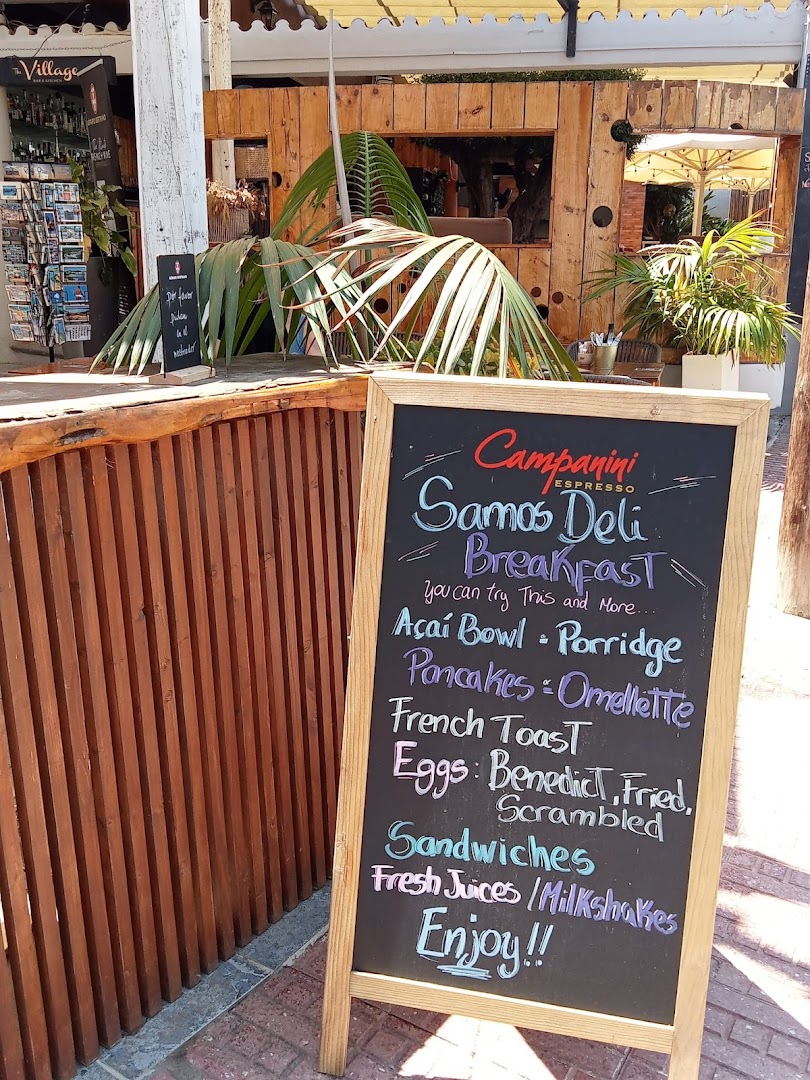 The Village
BAR & KITCHEN
Por favor
pidan
en el
mostrador
Campanini
ESPRESSO
Samos Deli
Breakfast
You can try This and More...
Açaí Bowl = Porridge
Pancakes = Omellette
French Toast
Eggs: Benedict, Fried,
Scrambled
Sandwiches
Fresh Juices / Milkshakes
Enjoy!!